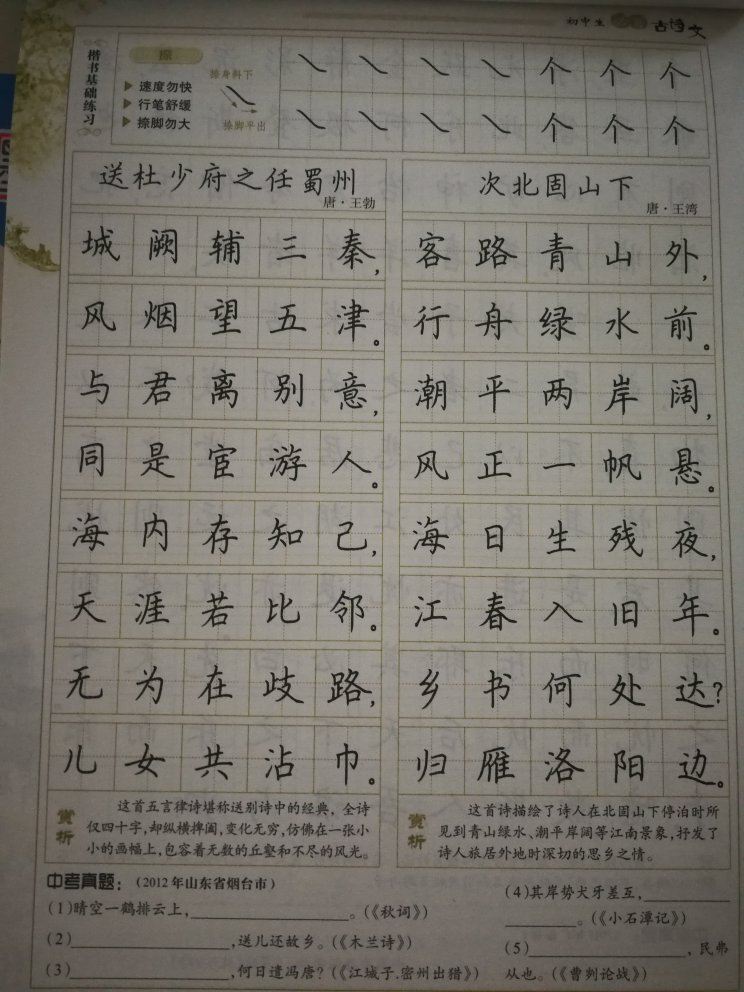 初中生
古诗文
楷书基础练习
捺
速度勿快
行笔舒缓
捺脚勿大
捺身斜下
捺脚平出
㇏ ㇏ ㇏ ㇏ 个 个 个
㇏ ㇏ ㇏ ㇏ 个 个 个
送杜少府之任蜀州
唐·王勃
城阙辅三秦,
风烟望五津。
与君离别意,
同是宦游人。
海内存知己,
天涯若比邻。
无为在歧路,
儿女共沾巾。
赏析
这首五言律诗堪称送别诗中的经典，全诗
仅四十字,却纵横捭阖,变化无穷,仿佛在一张小
小的画幅上,包容着无数的丘壑和不尽的风光。
次北固山下
唐·王湾
客路青山外,
行舟绿水前。
潮平两岸阔,
风正一帆悬。
海日生残夜,
江春入旧年。
乡书何处达?
归雁洛阳边。
赏析
这首诗描绘了诗人在北固山下停泊时所
见到青山绿水、潮平岸阔等江南景象,抒发了
诗人旅居外地时深切的思乡之情。
中考真题：（2012年山东省烟台市）
(1)晴空一鹤排云上,____________。(《秋词》)
(2)____________,送儿还故乡。(《木兰诗》)
(3)____________,何日遣冯唐?(《江城子.密州出猎》)
(4)其岸势犬牙差互,____________
____________。(《小石潭记》)
(5)____________,民弗
从也。(《曹刿论战》)